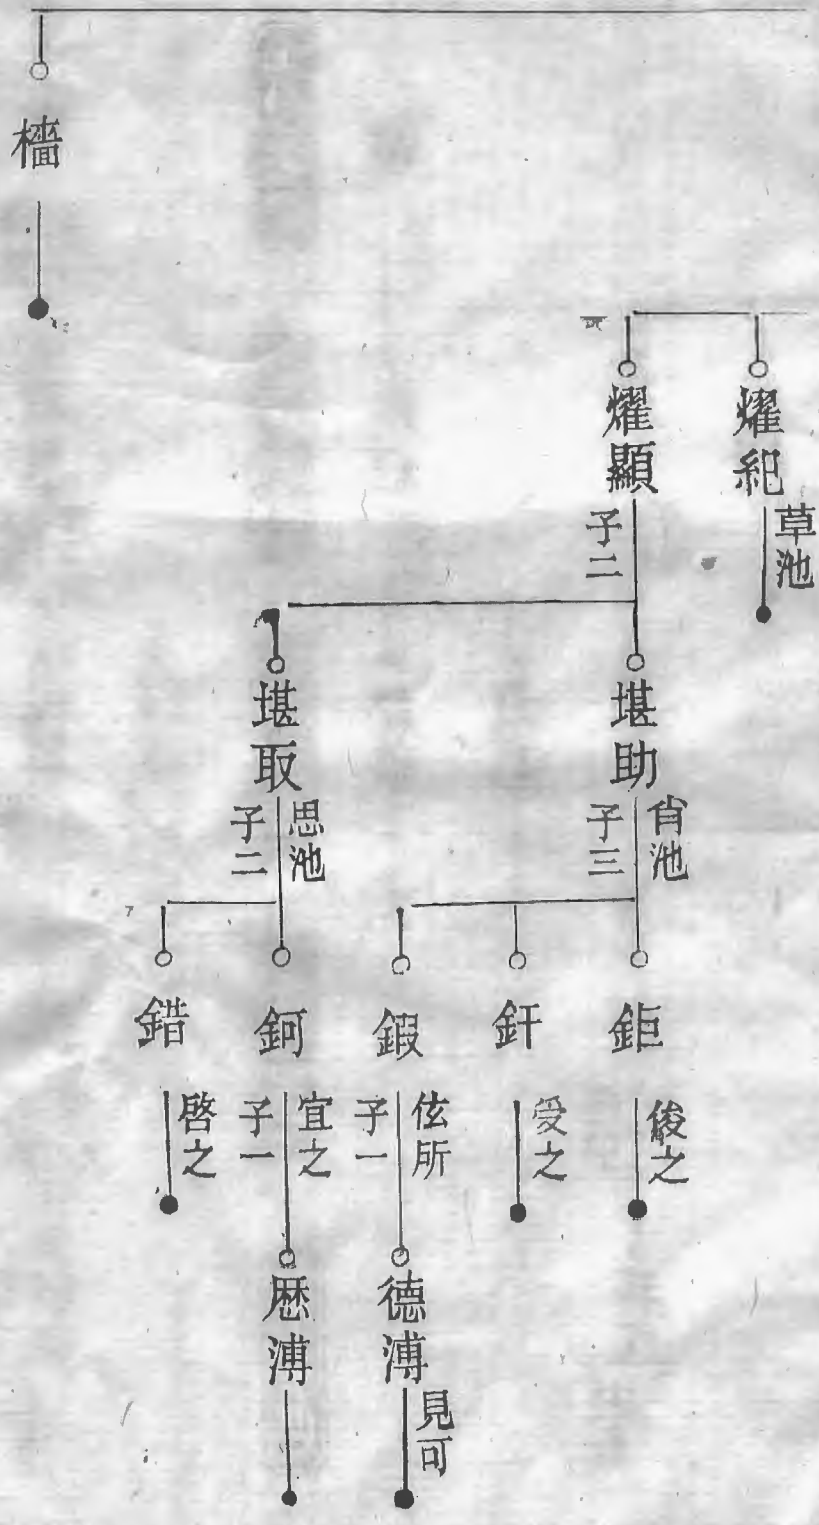 檣
燿紀
草池
燿顯
子二
堪助
肯池
子三
堪取
思池
子二
鉅
俊之
釬
受之
鍜
伭所
子一
鈳
宜之
子一
錯
啓之
德溥
見可
厯溥